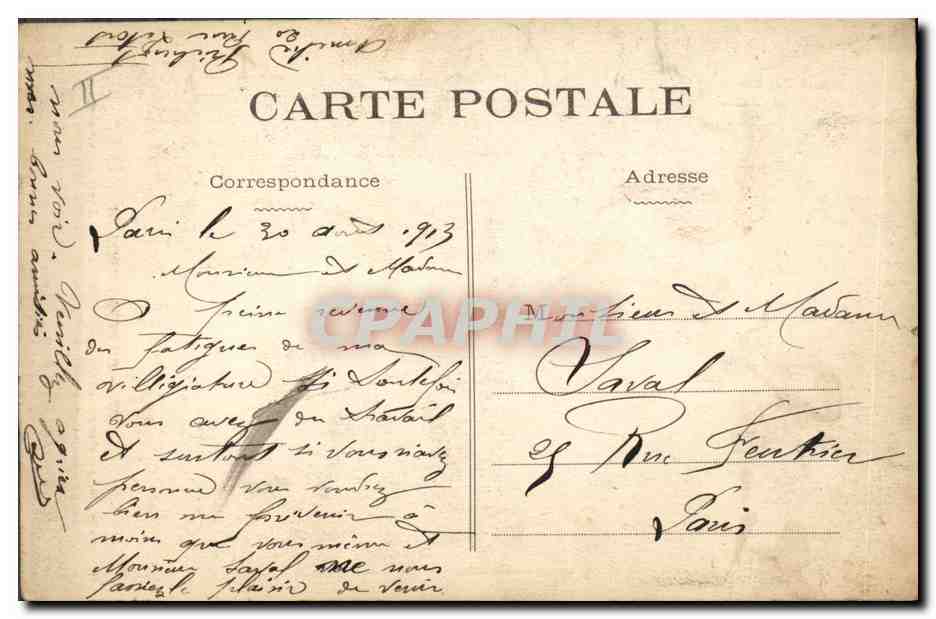 CARTE POSTALE
Correspondance
Paris le 30 août 1913
Monsieur et Madame
A peine revenue
des fatigues de ma
villégiature si toutefois
vous avez du travail
et surtout si vous n'avez
personne vous voudrez
bien me prévenir à
moins que vous même et
Monsieur Laval ne nous
fassiez le plaisir de venir
nous voir. Veuillez agréer
nos bonnes amitiés
Adresse
Monsieur et Madame
Laval
25 Rue Feutrier
Paris
II
20 rue
CPAPHIL